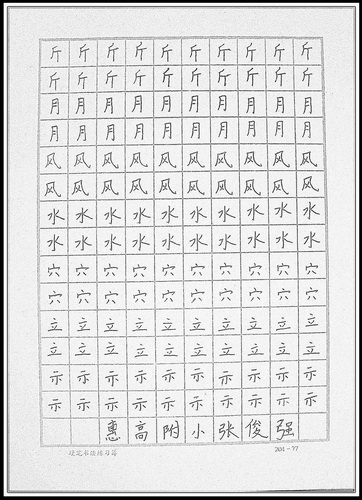 斤斤斤斤斤斤斤斤斤斤
斤斤斤斤斤斤斤斤斤斤
月月月月月月月月月月
月月月月月月月月月月
风风风风风风风风风风
风风风风风风风风风风
水水水水水水水水水水
水水水水水水水水水水
穴穴穴穴穴穴穴穴穴穴
穴穴穴穴穴穴穴穴穴穴
立立立立立立立立立立
立立立立立立立立立立
示示示示示示示示示示
示示示示示示示示示示
惠高附小张俊强